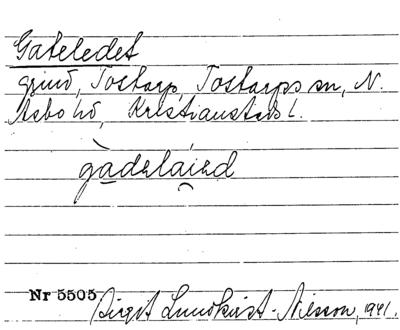 Gateledet
grind, Tostarp, Tostarps sn, N.
Åsbo hd, Kristianstads l.
gadəlaiəd
Nr 5505
Birgit Lundkvist-Nilsson, 1941.